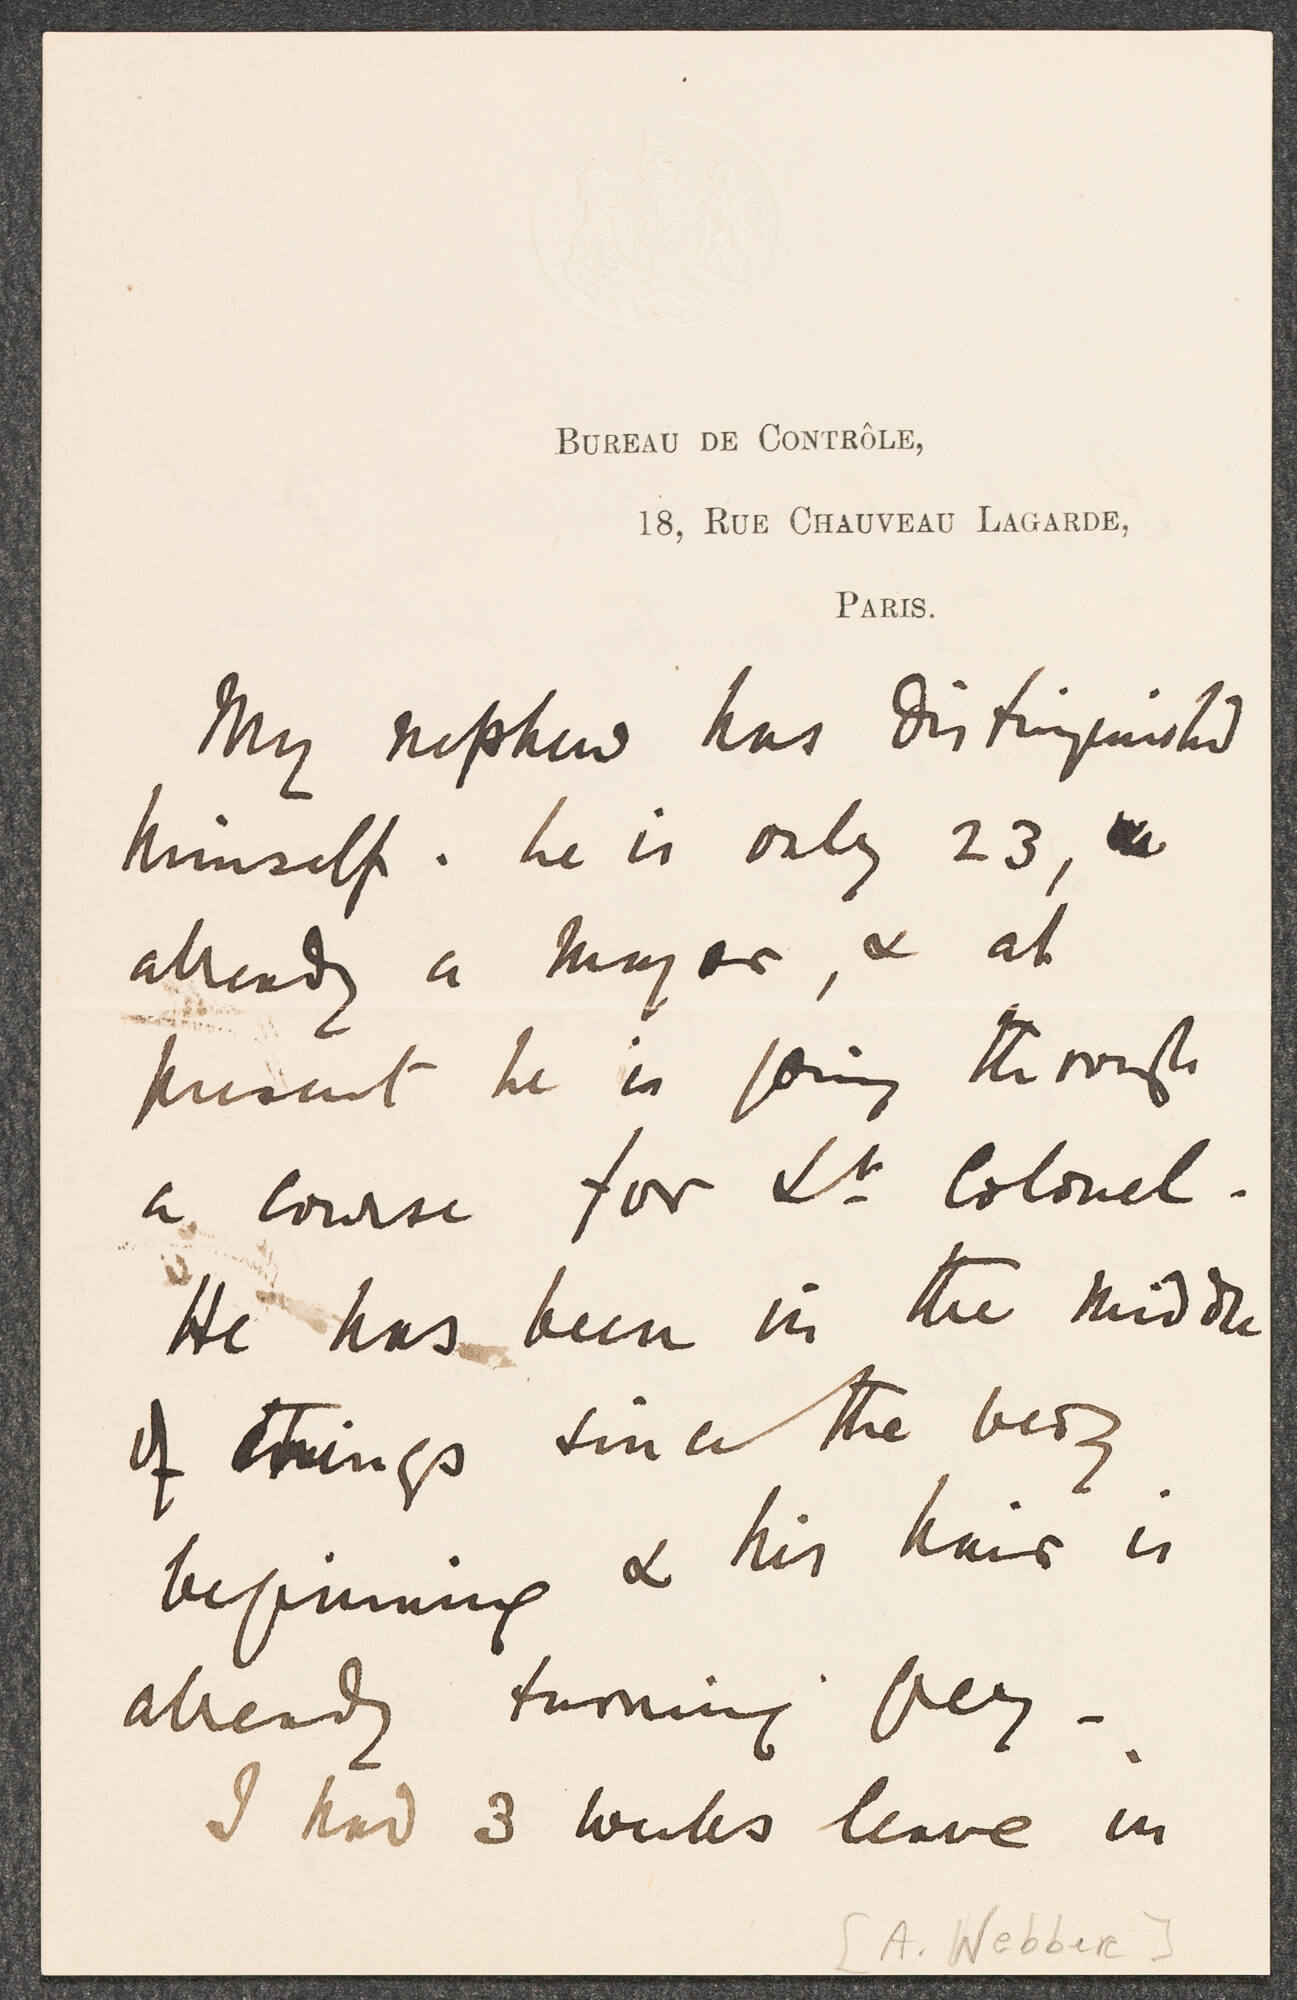 BUREAU DE CONTRÔLE,
18, RUE CHAUVEAU LAGARDE,
PARIS.
My nephew has distinguished
himself. he is only 23,
already a Mayor, & at
present he is going through
a course for Lt Colonel.
He has been in the middle
of things since the very
beginning & his hair is
already turning grey –
I had 3 weeks leave in
[A. Webber]